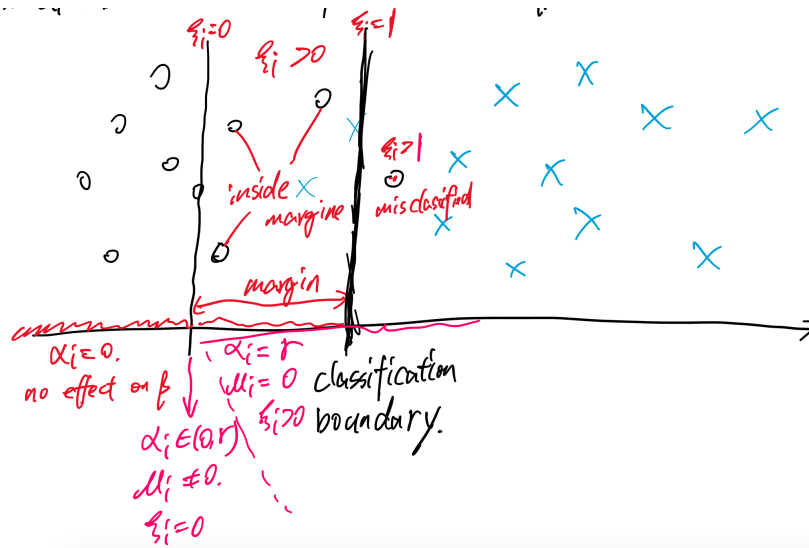 ξi=0
ξi=1
ξi >0
ξi>1
inside
margine
misclassified
margin
αi=0.
no effect on β
αi = r
μi = 0
ξi>0
classification
boundary.
αi∈(0,r)
μi ≠0.
ξi=0